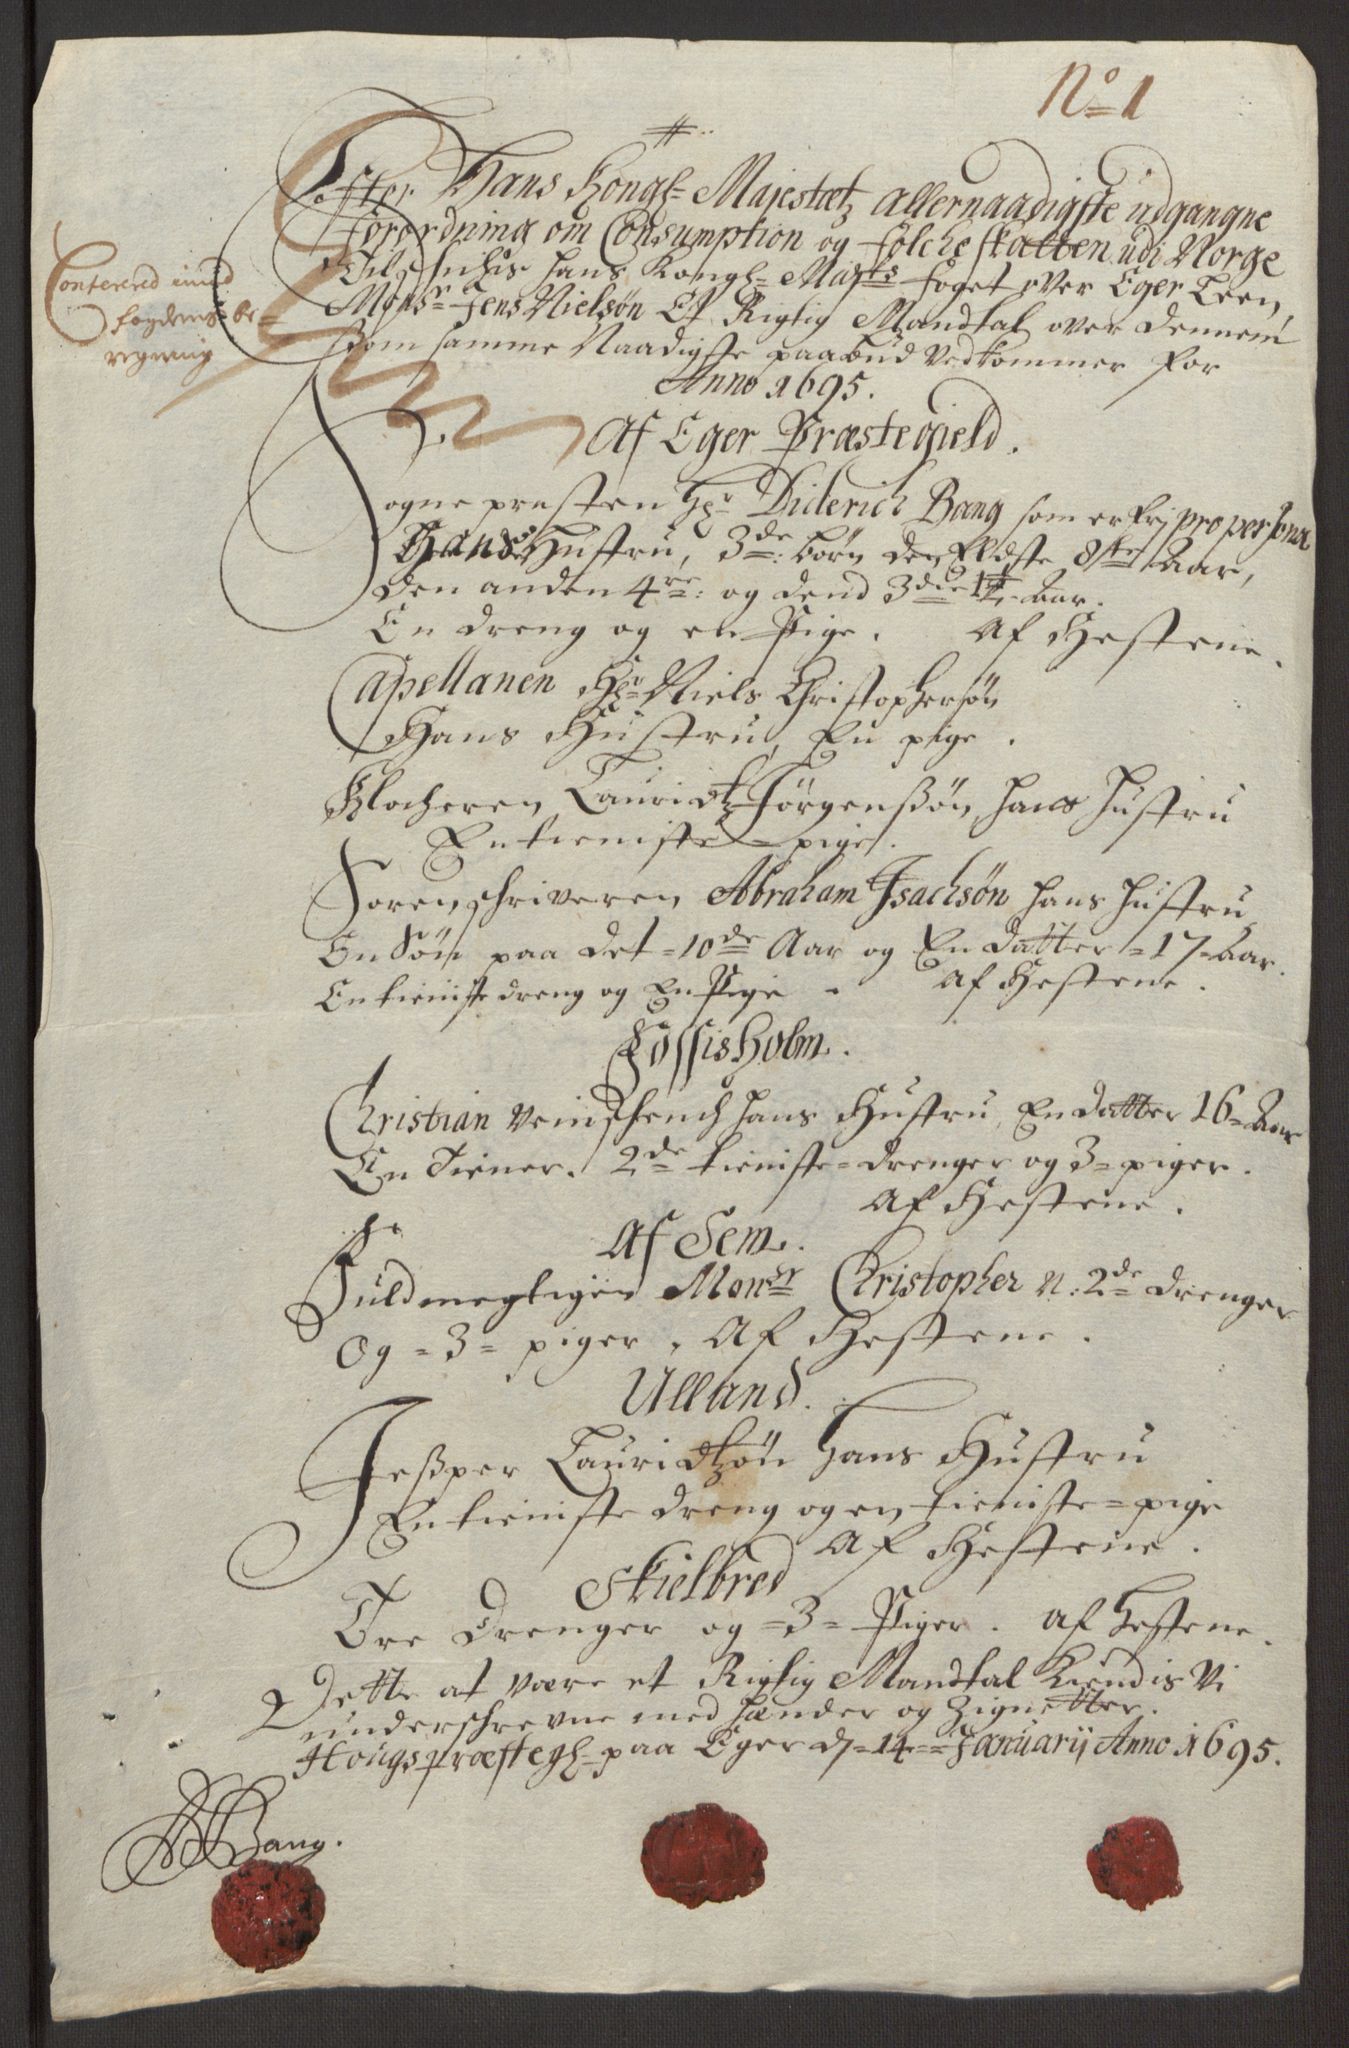 No 1
Efter Hans Kongl- Majestætz allernaadigste udgangne
forordning om Consumption og folcheskatten udi Norge
Tilstillis hans Kongl- Maysts foget over Eger Leen,
Monsr Jens Nielsøn Et Rigtig Mandtal over dennem
som samme Naadigste paabud Vedkommer for
Anno 1695.
Confererid imod
fogdens be-
regning
Af Eger Præstegield.
Sogne presten Hr Diderich Bang som er frj pro persona
Hans Hustru, 3de børn den Eldste 8te Aar,
den anden 4re: og dend 3die 1 1/2 Aar.
En dreng og en Pige. Af Hestene.
Capellanen Hr Niels Christophersøn
Hans Hustru, En pige.
Klocheren Lauridtz Jörgenßøn, hans hustru
En tieniste-pige.
Sorenschriveren Abraham Isachsøn hans hustru
En Søn paa det = 10de Aar og En datter = 17 = Aar.
En tieniste dreng og En Pige. Af Hestene.
Fossisholm.
Christian Veinschench hans Hustru, En datter 16 = Aar
En Tiener. 2de tieniste = drenger og 3 = piger.
Af Hestene.
Af Sem.
Fuldmegtigen Monsr Christopher N: 2de drenger
Og = 3 = piger. Af Hestene.
Ulland.
Jeßper Lauridtzøn hans Hustru
En tieniste dreng og en tieniste = pige
Af Hestene.
Skielbred
Tre Drenger og = 3 = Piger. Af hestene.
Dette at være et Rigtig Mandtal Kiendis Vi
underschrevne med hænder og Zignetter.
Hougs præstegl- paa Eger d = 14 = Januarij Anno 1695.
Bang.